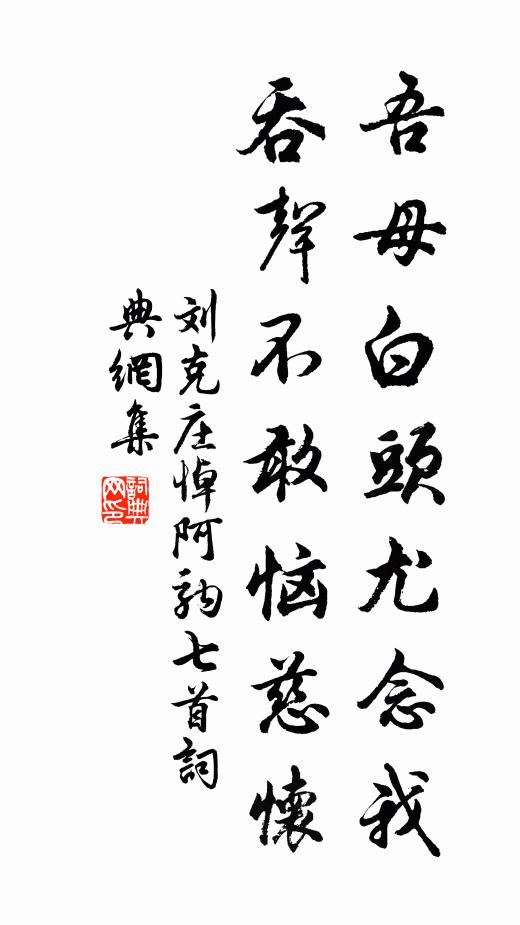 吾母白頭尤念我
吞聲不敢恼慈懷
刘克庄悼阿駒七首詞
典網集
詞典網印